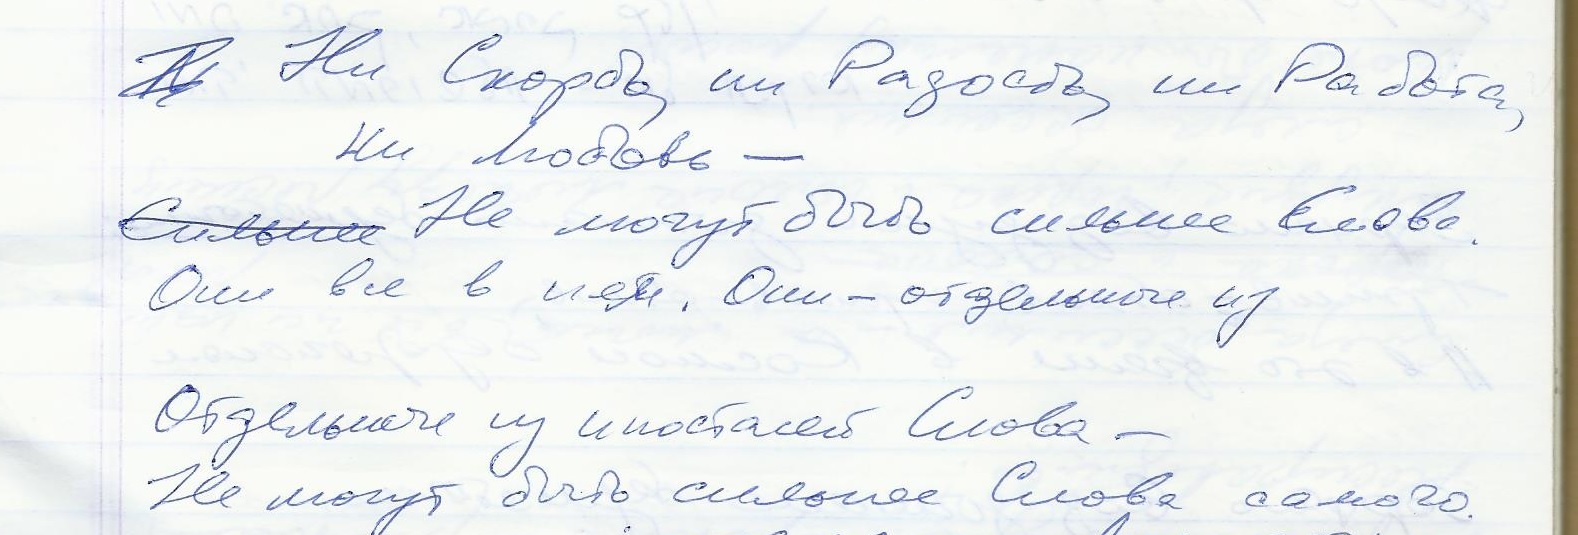 Ни Скорбь, ни Радость, ни Работа,
ни любовь —
Сильнее Не могут быть сильнее Слова.
Они все в нем. Они – отдельные из
Отдельные из ипостасей Слова –
Не могут быть сильнее Слова самого.